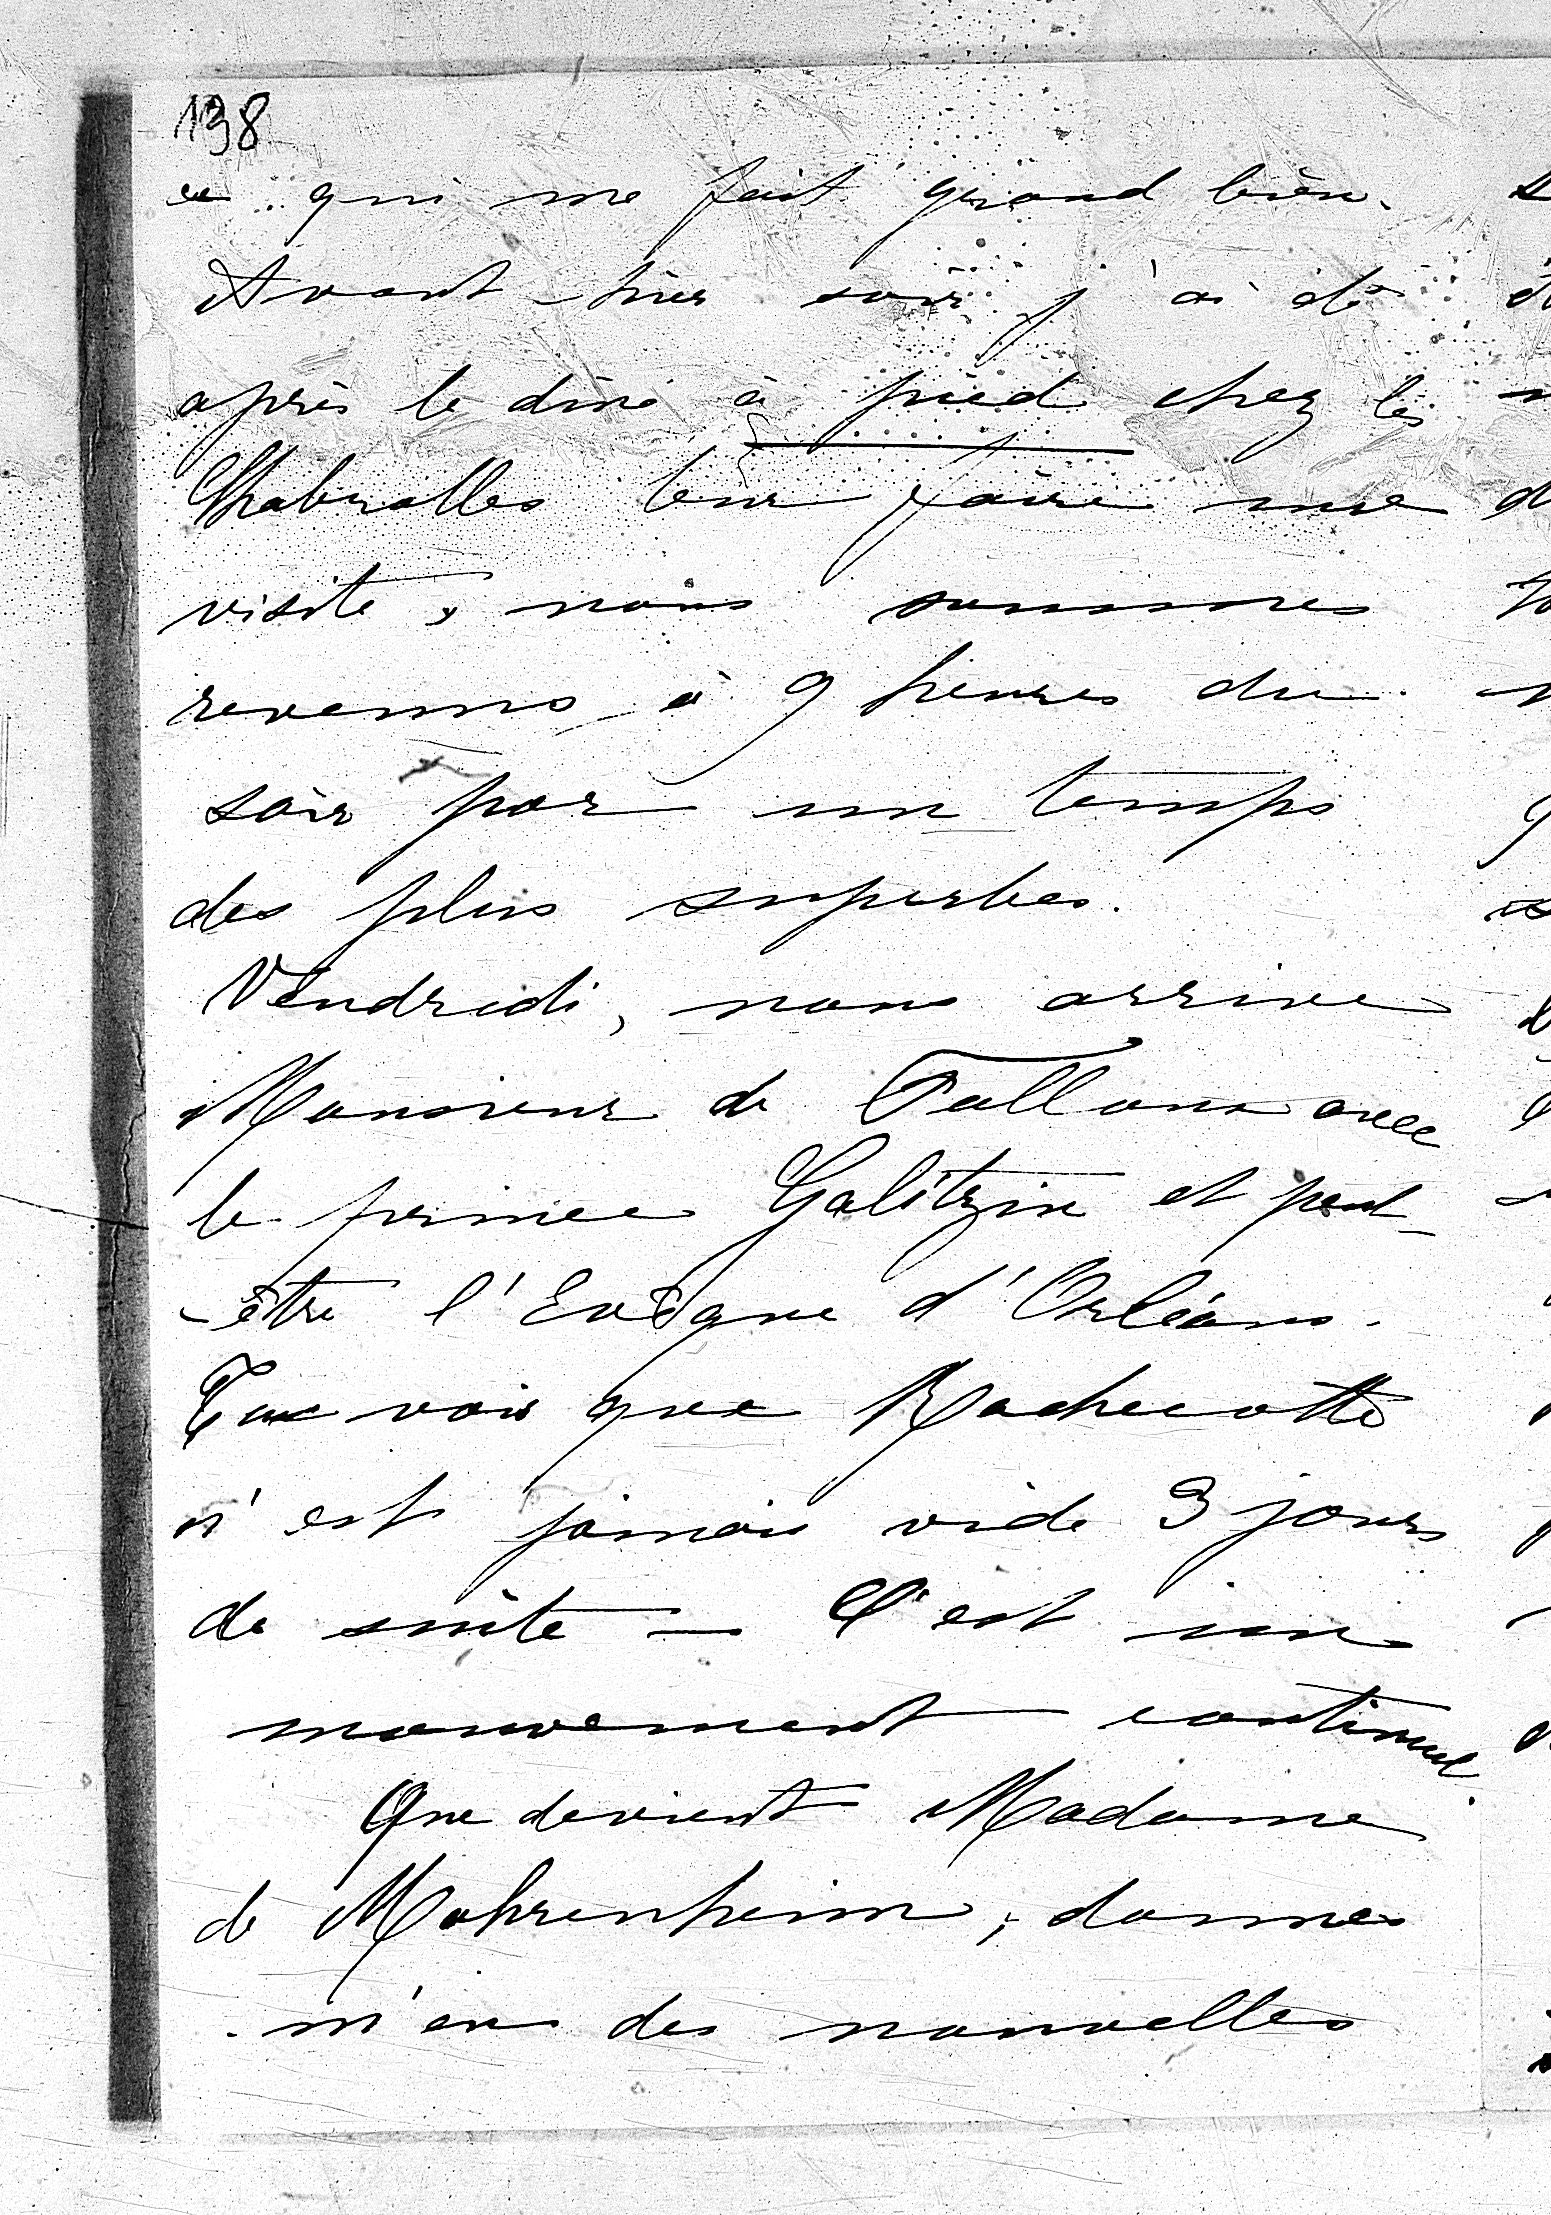 138
ce qui me fait grand bien.
Avant-hier soir j'ai été
après le diné à pied chez les
Chabrolles leur faire une
visite, nous sommes
revenus à 9 heures du
soir par un temps
des plus superbes.
Vendredi, nous arrive
Monsieur de Falloux avec
le prince Galitzin et peut-
-être l'Evêque d'Orléans.
Tu vois que Rochecotte
n'est jamais vide 3 jours
de suite — C'est un
mouvement continuel.
Que devient Madame
de Mohrenheim, donnes
m'en des nouvelles